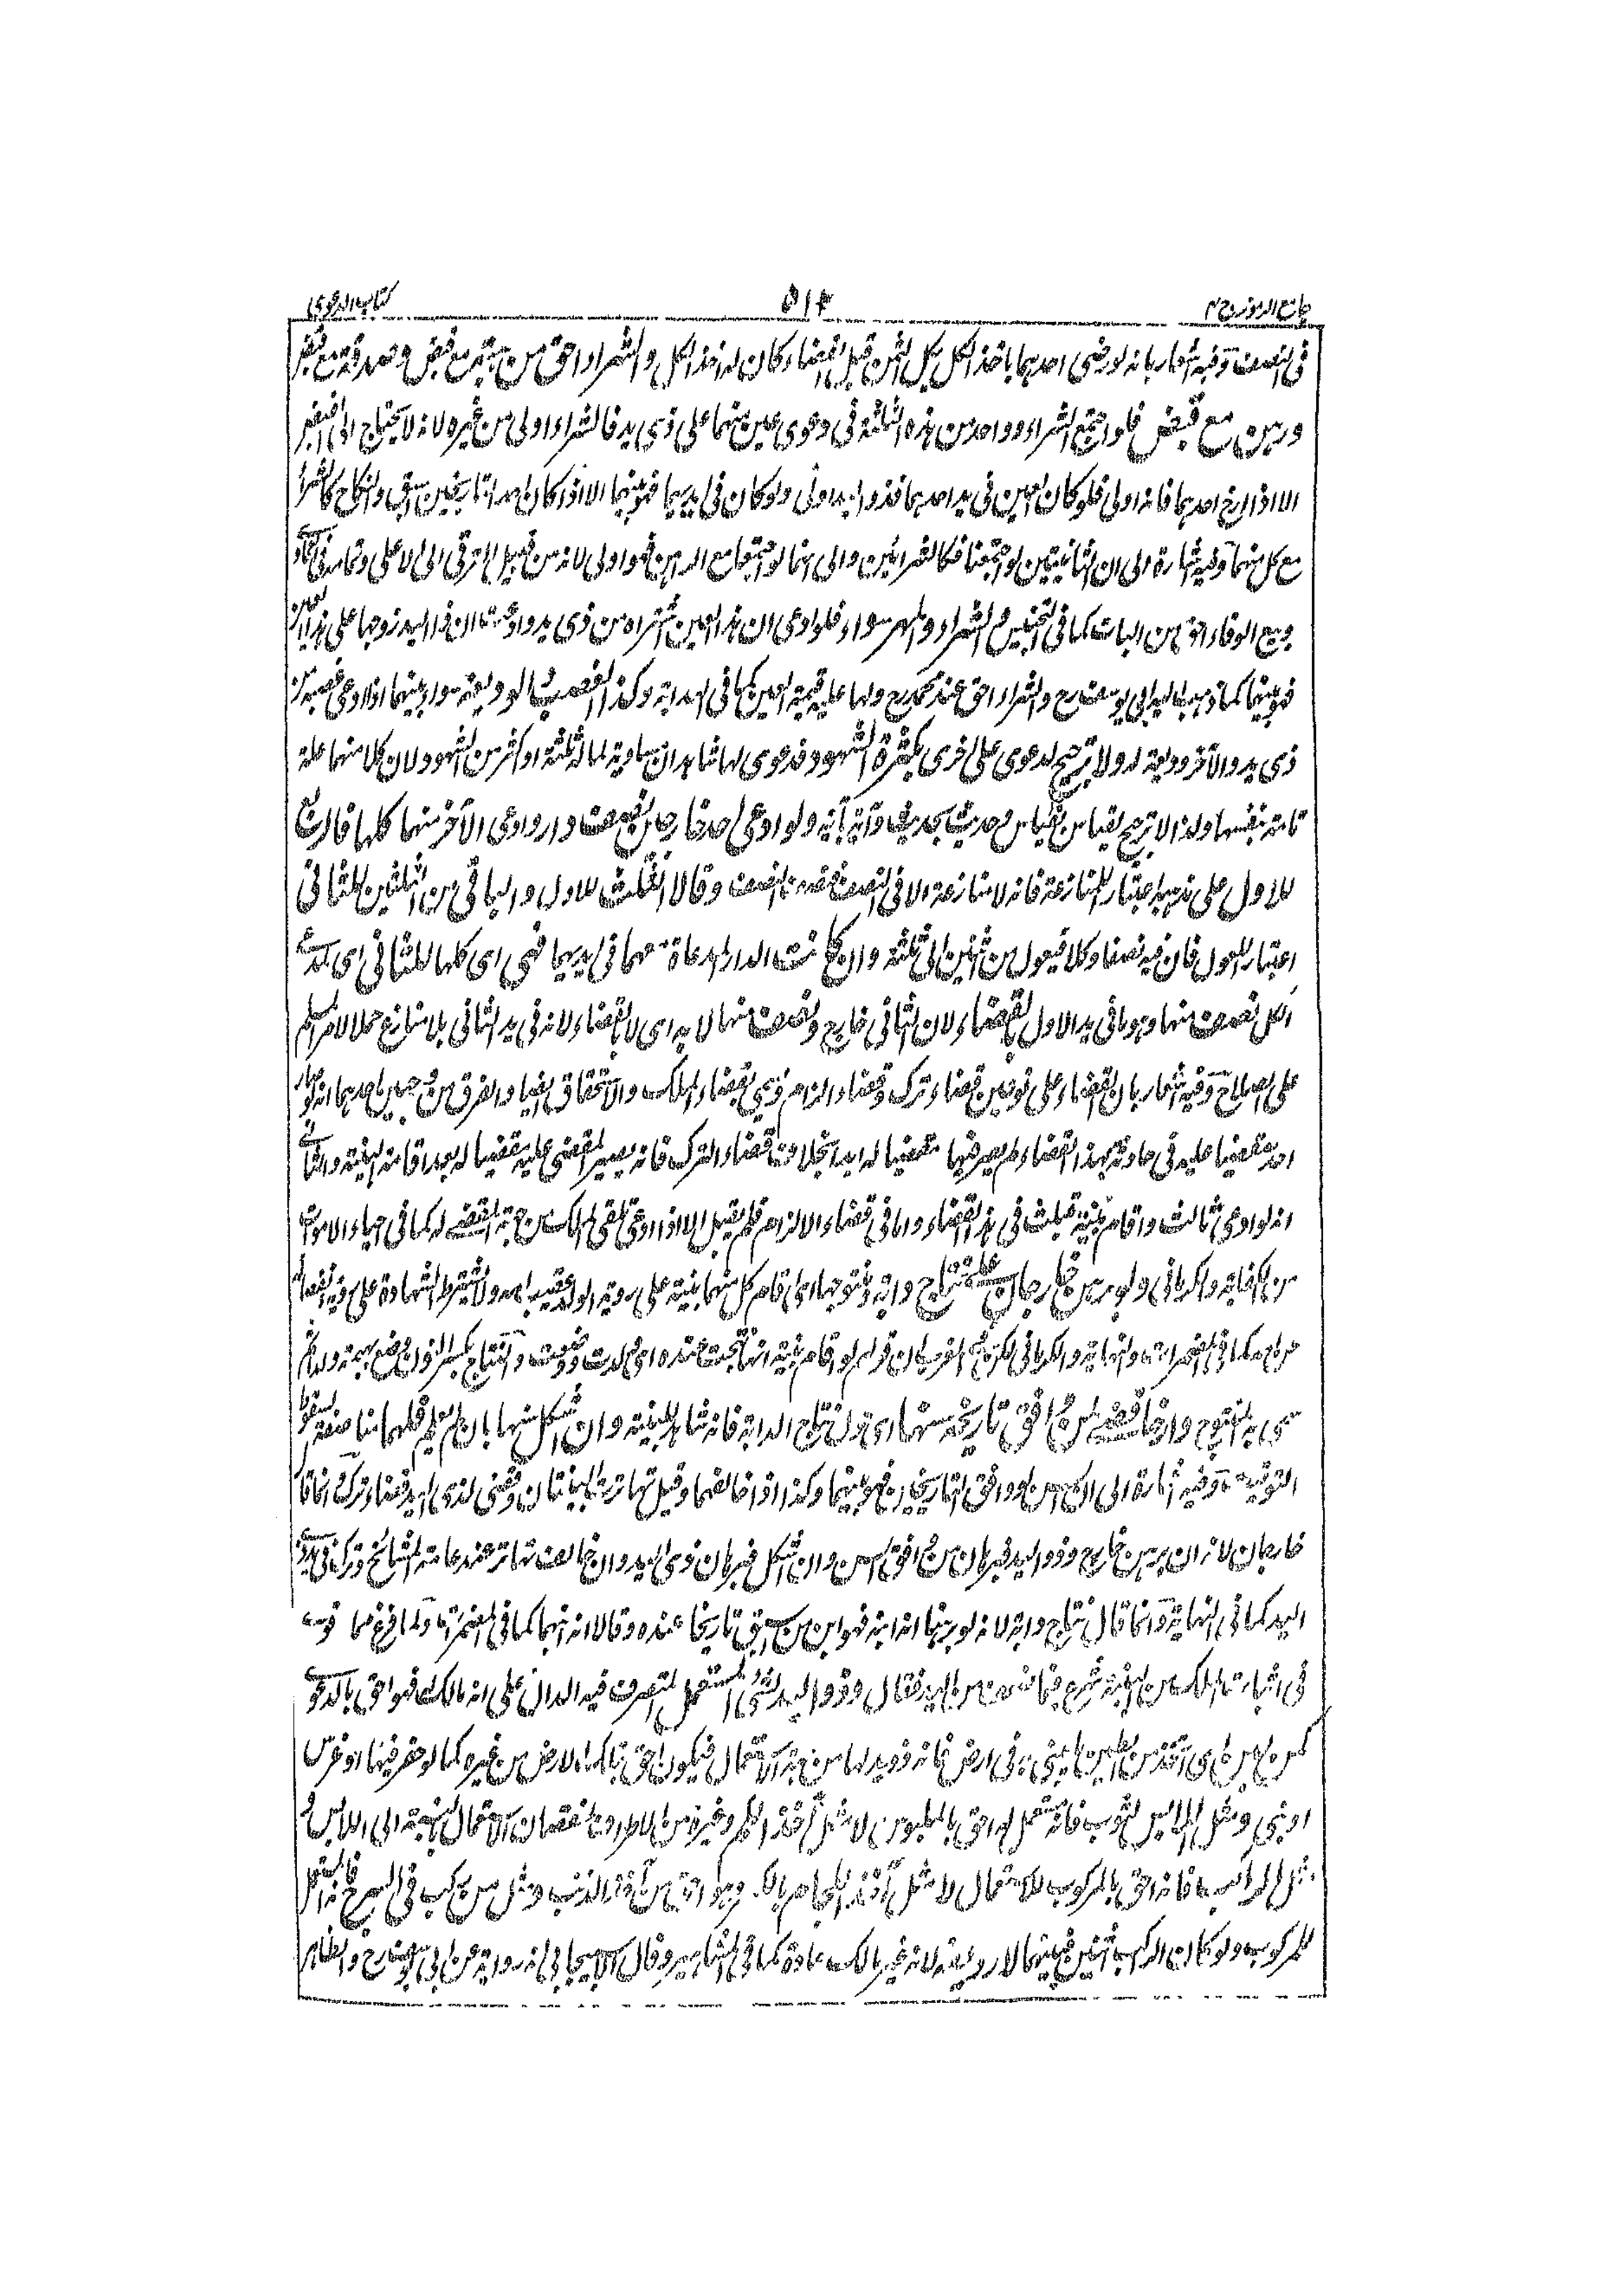 جامع الرموز ج ٢
٥١٤
كتاب الدعوى
فى النصف وفيه اشعار بانه لو رضى احدهما باخذ الكل بكل الثمن قبل القضاء كان له اخذ الكل والشراء احق من هبة مع قبض وصدقة مع قبض
ورهن مع قبض فلو اجتمع الشراء وواحد من هذه الثلثة فى دعوى عين منهما على ذى يد فالشراء اولى من غيره لانه لا يحتاج الى القبض
الا اذا ارخ احدهما فانه اولى فلو كان العين فى يد احدهما فذو اليد اولى ولو كان فى ايديهما فهو بينهما الا اذا كان احد التاريخين سبق والنكاح كالشراء
مع كل منهما وفيه اشارة الى ان الثانيتين لو اجتمعتا فكالشرائين والى انهما لو اجتمعا مع الرهن فهو اولى لانه من قبيل الترقى الى الاعلى
وبيع الوفاء احق من البات كما فى التجنيس والشراء والمهر سواء فلو ادعى ان هذا العين اشتراه من ذى يد وادعت ان ذا اليد تزوجها على هذا العين
فهو بينهما كما ذهب اليه ابى يوسف رح والشراء احق عند محمد رح ولها عليه قيمة العين كما فى الهداية وكذا الغصب الوديعة سواء بينهما اذا ادعى غصبه من
ذى يد والآخر وديعة له ولا ترجيح لدعوى على اخرى بكثرة الشهود فدعوى لها شاهدان مساوية لما له ثلثة او اكثر من الشهود لان كلا منهما علة
تامة بنفسها ولذا لا ترجيح بقياس لقياس وحديث بحديث وآية بآية ولو ادعى احد خارجين نصف دار وادعى الآخر منهما كلها فالربع
للاول على مذهبه اعتبار المنازعة فانه لا منازعة الا فى النصف فنصفه وقالا الثلث للاول والباقى من الثلثين للثانى
اعتبار للعول فان فيه نصفا وكلا فيعول من اثنين الى ثلثة وان كانت الدار المدعاة معهما فى يديهما فهى اى كلها للثانى اى مدعى
الكل نصف منها وهو ما فى يد الاول بالقضاء لان الثانى خارج ونصف منها لا به اى لا بالقضاء لانه فى يد الثانى بلا منازع حملا لامر المسلم
على الصلاح وفيه اشعار بان القضاء على نوعين قضاء ترك وقضاء الزام ويسمى بقضاء الملك والاستحقاق ايضا والفرق من وجهين احدهما انه لو صار
احد مقضيا عليه فى حادثة بهذا القضاء لم يصر فيها مقضيا له ابدا بخلاف قضاء الترك فانه يصير المقضى عليه مقضيا له بعد اقامة البينة والثانى
انه لو ادعى ثالث واقام بينة قبلت فى هذا القضاء واما فى قضاء الالزام فلم يقبل الا اذا ادعى تلقى الملك من جهة المقضى له كما فى احياء الاموات
من الكفاية والكرمانى ولو برهن خارجان على نتاج دابة ونتوجها اى اقام كل منهما بينة على
كما فى المضمرات والنهاية والكرمانى لكن فى المغرب ان قولهم لو اقام بينة انها نتجت عنده اى ولدت ووضعت والنتاج بكسر النون وضع بهيمة ولدها ثم
سمى به المنتوج وارخا قضى لمن وافق تاريخه سنها اى نتاج الدابة فانه شاهد للبينة وان اشكل سنها بان لم يعلم فلهما مناصفة لسقوط
التوقيت وفيه اشارة الى ان السن لو وافق التاريخين فهو بينهما وكذا اذا خالفهما وقيل تهاترت البينتان وقضى لذى اليد قضاء ترك وانما قال
خارجان لانه ان برهن خارج وذو اليد فبرهان من وافق السن وان اشكل فبرهان ذى اليد وان خالف تهاتر عند عامة المشائخ وترك فى يد ذى
اليد كما فى النهاية وانما قال نتاج دابة لانه لو برهنا انه ابنه فهو ابن من سبق تاريخا عنده وقالا انه ابنهما كما فى المضمرات ولما فرغ مما
فى اثبات الملك من البينة شرع فيما ... من اليد فقال وذو اليد الشئ المستعمل المتصرف فيه الدال على انه مالك له فهو احق بالدعوى
كمن لبن اى اتخذ من الطين ما يبنى به فى ارض فانه ذو يد لها من جهة الاستعمال فيكون احق بتلك الارض من غيره كما لو حفر فيها او غرس
او بنى ومثل اللابس لثوب فانه مستعمل له احق بالملبوس لا مثل آخذ الكم وغيره من الاطراف لنقصان الاستعمال بالنسبة الى اللابس و
مثل الراكب فانه احق بالمركوب للاستعمال لا مثل آخذ اللجام وهو احق من آخذ الذنب ومثل من ركب فى السرج فانه المستعمل
للمركوب ولو كان الراكب اثنين فبينهما لا رديفه لانه غير مالك عادة كما فى المشاهير وقال الاسبيجابى انه رواية عن ابى يوسف رح والظاهر